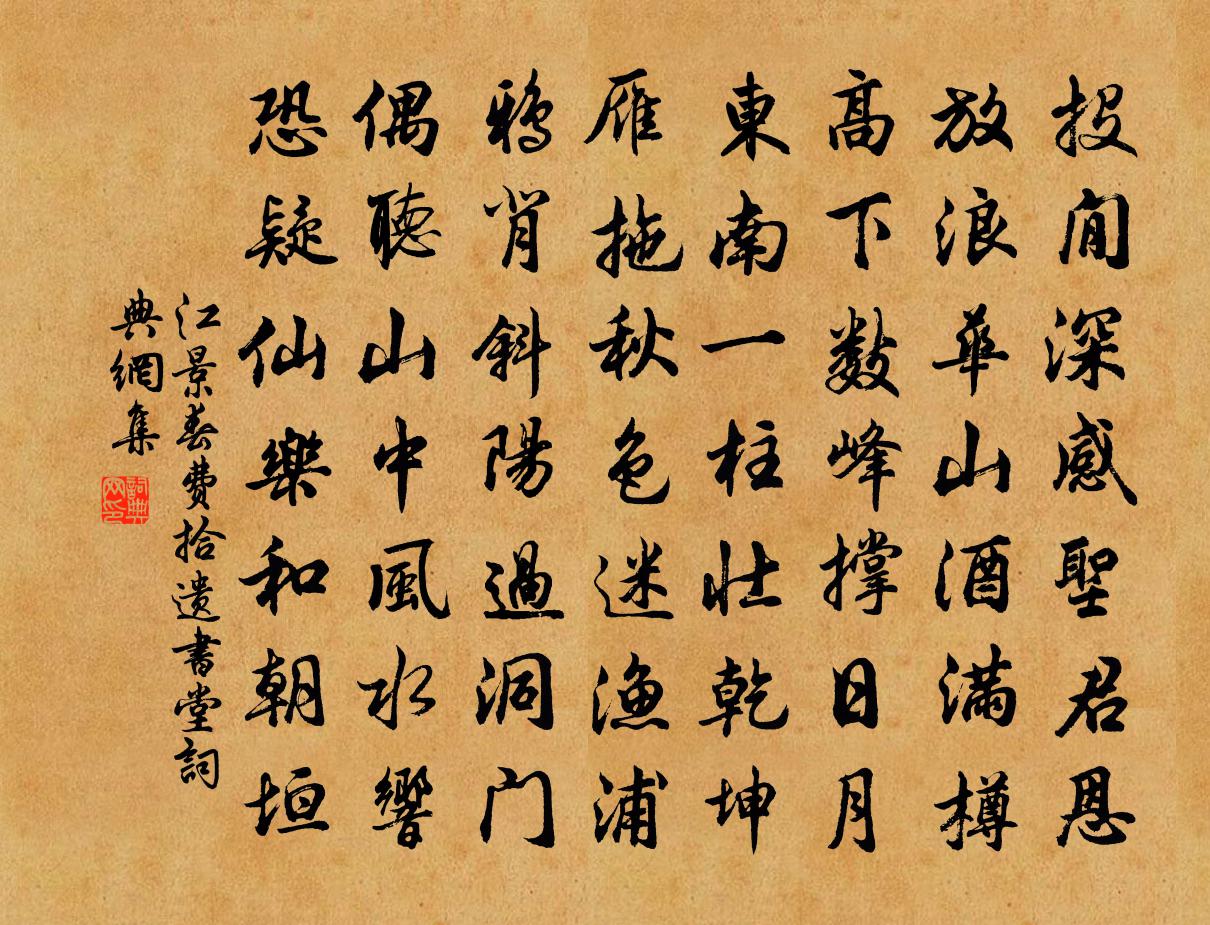 投閒深感聖君恩
放浪華山酒滿樽
高下數峰撐日月
東南一柱壯乾坤
雁拖秋色迷漁浦
鴉背斜陽過洞門
偶聽山中風水響
恐疑仙樂和朝垣
江景春費拾遺書堂詞
典網集
詞典
网印